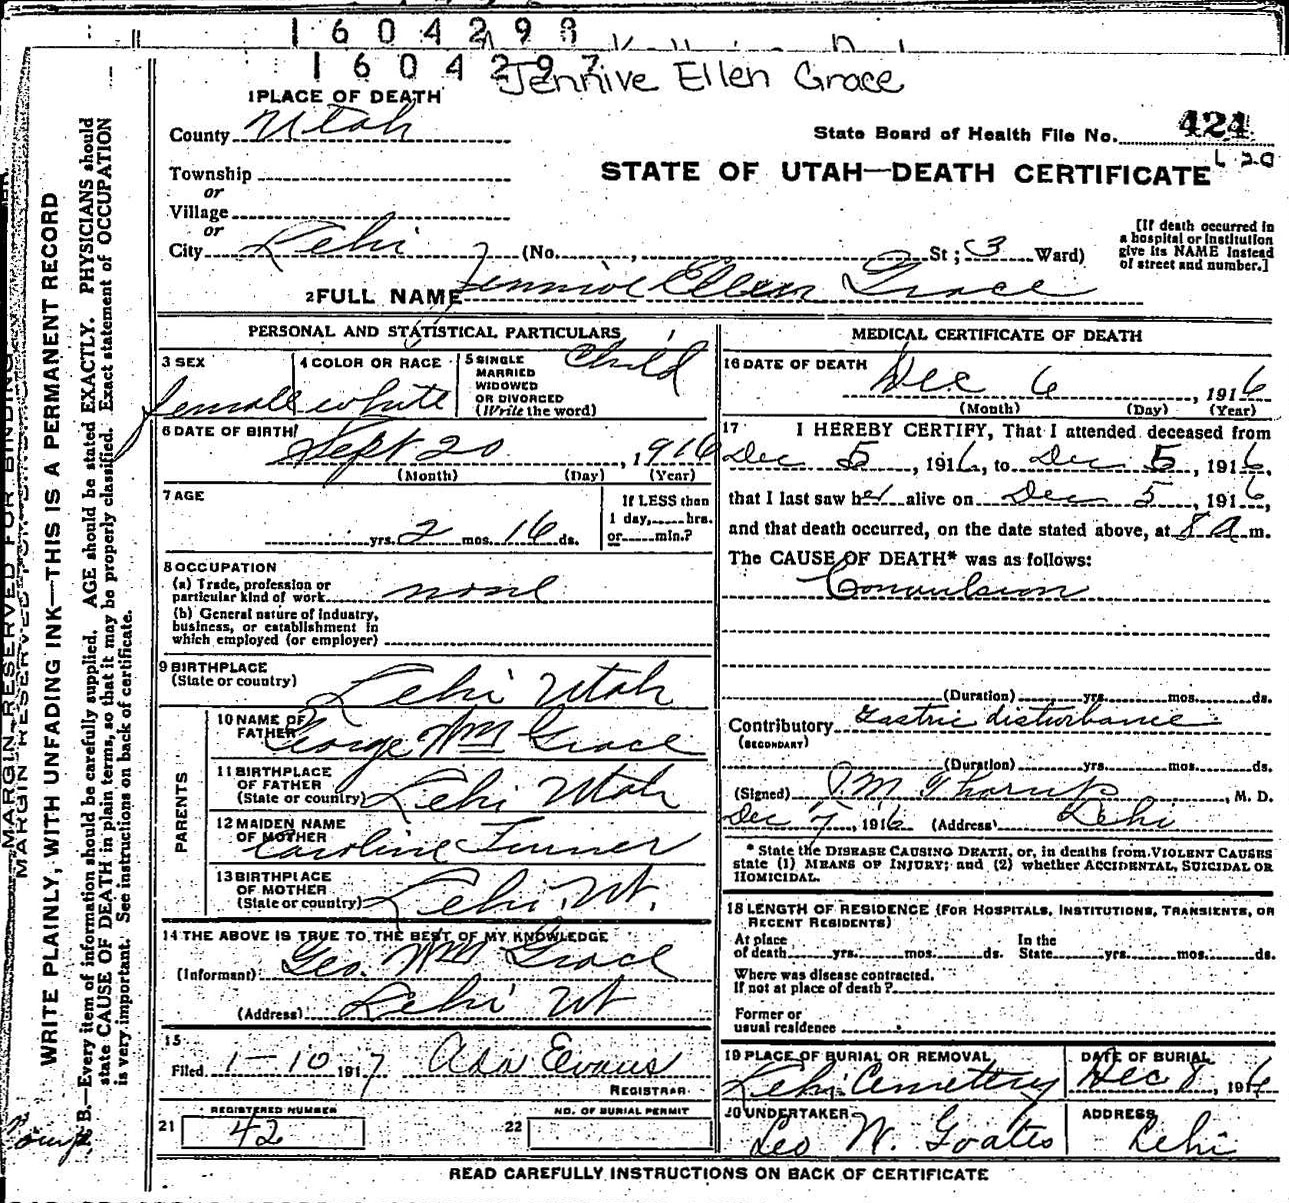 1604298
1604297
Jennive Ellen Grace
1 PLACE OF DEATH
County Utah
State Board of Health File No. 424
L 20
Township
or
Village
or
City Lehi (No. , St; 3 Ward)
STATE OF UTAH—DEATH CERTIFICATE
[If death occurred in
a hospital or institution
give its NAME instead
of street and number.]
2 FULL NAME Jennive Ellen Grace
PERSONAL AND STATISTICAL PARTICULARS
3 SEX
female
4 COLOR OR RACE
white
5 SINGLE
MARRIED
WIDOWED
OR DIVORCED
(Write the word)
Child
6 DATE OF BIRTH
Sept 20, 1916
(Month) (Day) (Year)
7 AGE
yrs. 2 mos. 16 ds.
If LESS than
1 day, hrs.
or min.?
8 OCCUPATION
(a) Trade, profession or
particular kind of work none
(b) General nature of industry,
business, or establishment in
which employed (or employer)
9 BIRTHPLACE
(State or country) Lehi Utah
PARENTS
10 NAME OF
FATHER George Wm Grace
11 BIRTHPLACE
OF FATHER
(State or country) Lehi Utah
12 MAIDEN NAME
OF MOTHER Caroline Turner
13 BIRTHPLACE
OF MOTHER
(State or country) Lehi Ut.
14 THE ABOVE IS TRUE TO THE BEST OF MY KNOWLEDGE
(Informant) Geo. Wm Grace
(Address) Lehi Ut
15
Filed 1-10 1917 Ada Evans
REGISTRAR
REGISTERED NUMBER
21 42
NO. OF BURIAL PERMIT
22
MEDICAL CERTIFICATE OF DEATH
16 DATE OF DEATH
Dec 6, 1916
(Month) (Day) (Year)
17 I HEREBY CERTIFY, That I attended deceased from
Dec 5, 1916, to Dec 5, 1916,
that I last saw her alive on Dec 5, 1916,
and that death occurred, on the date stated above, at 8 a m.
The CAUSE OF DEATH* was as follows:
Convulsion
(Duration) yrs. mos. ds.
Contributory Gastric disturbance
(SECONDARY)
(Duration) yrs. mos. ds.
(Signed) Thorup, M. D.
Dec 7, 1916 (Address) Lehi
* State the DISEASE CAUSING DEATH, or, in deaths from VIOLENT CAUSES
state (1) MEANS OF INJURY; and (2) whether ACCIDENTAL, SUICIDAL OR
HOMICIDAL.
18 LENGTH OF RESIDENCE (FOR HOSPITALS, INSTITUTIONS, TRANSIENTS, OR
RECENT RESIDENTS)
At place
of death yrs. mos. ds.
In the
State yrs. mos. ds.
Where was disease contracted,
If not at place of death?
Former or
usual residence
19 PLACE OF BURIAL OR REMOVAL
Lehi Cemetery
DATE OF BURIAL
Dec 8, 1916
20 UNDERTAKER
Leo W. Goates
ADDRESS
Lehi
READ CAREFULLY INSTRUCTIONS ON BACK OF CERTIFICATE
MARGIN RESERVED FOR BINDING
MARGIN RESERVED FOR BINDING
WRITE PLAINLY, WITH UNFADING INK—THIS IS A PERMANENT RECORD
N. B.—Every item of information should be carefully supplied. AGE should be stated EXACTLY. PHYSICIANS should
state CAUSE OF DEATH in plain terms, so that it may be properly classified. Exact statement of OCCUPATION
is very important. See instructions on back of certificate.